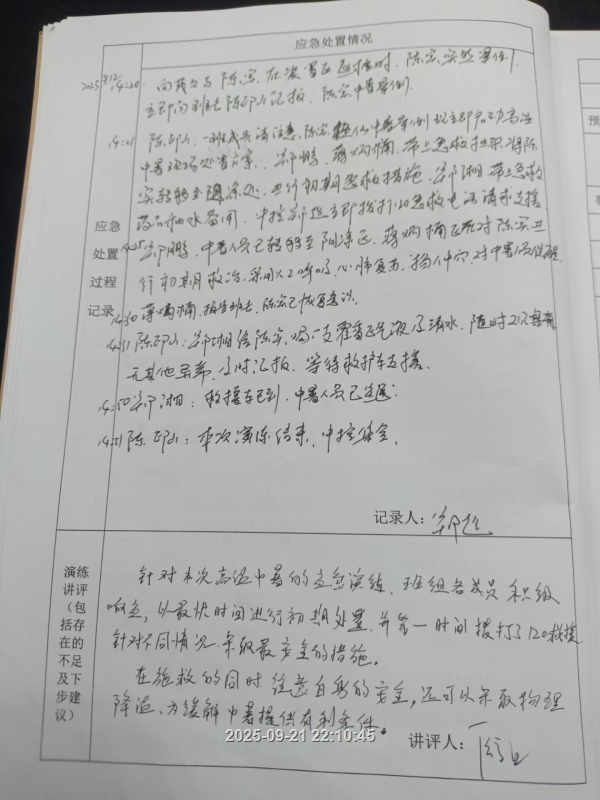 应急处置情况
2025 14:20. 向 陈宏 在装置区巡检时, 陈宏突然晕倒,
立即向班长陈邱山汇报, 陈宏中暑晕倒.
14:21 陈邱山: 一班成员请注意, 陈宏 中暑晕倒 现立即启动高温
中暑现场处置方案. 郑鹏, 蒋炳楠, 带上急救担架将陈
宏转移至阴凉处. 进行初期急救措施. 郑湘 带上急救
药品和水备用. 中控郑延立即拨打120急救电话请求支援
应急处置过程记录
14:25 郑鹏, 中暑人员已转移至阴凉区. 蒋炳楠正在对陈宏进
行初期救治. 采用人工呼吸, 心肺复苏, 掐人中穴, 对中暑人员
14:30 蒋炳楠, 报告班长, 陈宏已恢复意识.
14:31 陈邱山: 郑湘给陈宏喝一支藿香正气液及清水, 随时
无其他异常, 及时汇报, 等待救护车支援.
14:50 郑湘: 救援车已到, 中暑人员已送医.
14:51 陈邱山: 本次演练结束, 中控集合.
记录人: 郑延
演练讲评(包括存在的不足及下步建议)
针对本次高温中暑的应急演练, 班组各成员积极
响应, 以最快时间进行初期处置, 并第一时间拨打了120救援.
针对不同情况采取最安全的措施.
在施救的同时, 注意自身的安全, 还可以采取物理
降温, 为缓解中暑提供有利条件.
讲评人:
2025-09-21 22:10:45
预